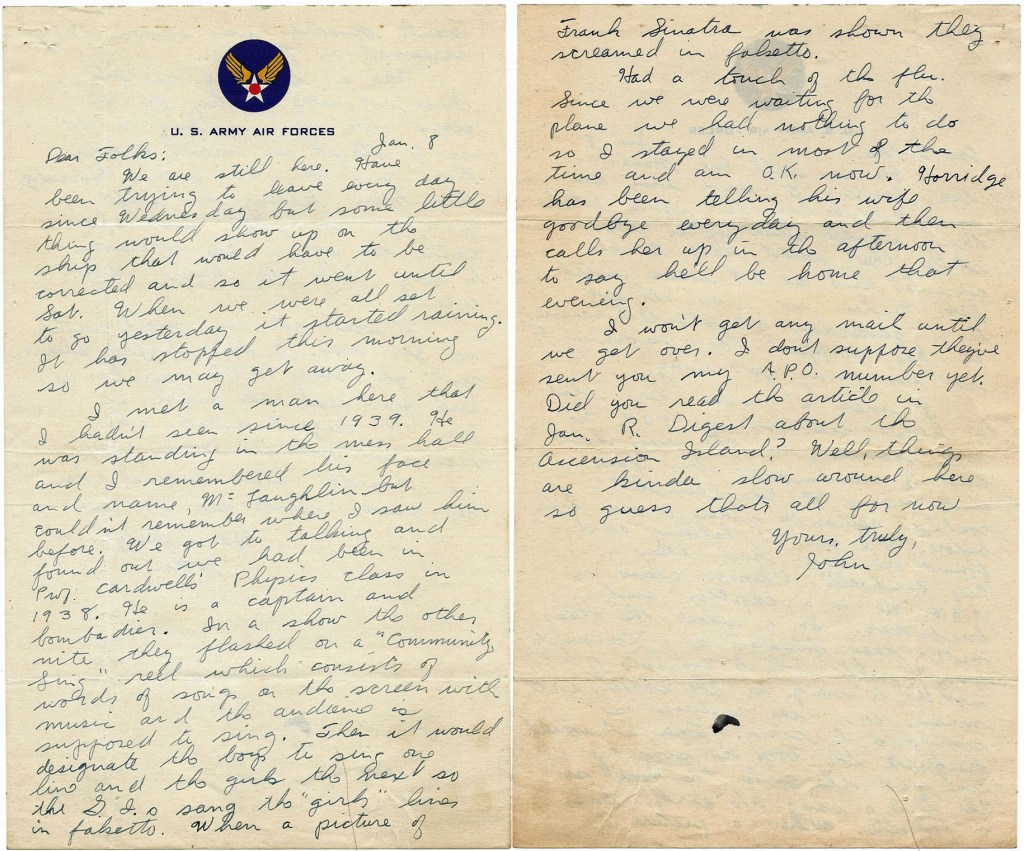 U. S. ARMY AIR FORCES
Jan. 8
Dear Folks:
We are still here. Have
been trying to leave every day
since Wednesday but some little
thing would show up on the
ship that would have to be
corrected and so it went until
Sat. When we were all set
to go yesterday it started raining.
It has stopped this morning
so we may get away.
I met a man here that
I hadn't seen since 1939. He
was standing in the mess hall
and I remembered his face
and name, Mc Laughlin but
couldn't remember where I saw him
before. We got to talking and
found out we had been in
Prof. Cardwells' Physics class in
1938. He is a captain and
bombadier. In a show the other
nite they flashed on a "Community
Sing" reel which consists of
words of songs on the screen with
music and the audience is
supposed to sing. Then it would
designate the boys to sing one
line and the girls the next so
the G.I.s sang the "girls" lines
in falsetto. When a picture of
Frank Sinatra was shown they
screamed in falsetto.
Had a touch of the flu.
Since we were waiting for the
plane we had nothing to do
so I stayed in most of the
time and am O.K. now. Horridge
has been telling his wife
goodbye everyday and then
calls her up in the afternoon
to say he'll be home that
evening.
I won't get any mail until
we get over. I don't suppose they've
sent you my A.P.O. number yet.
Did you read the article in
Jan. R. Digest about the
Ascension Island? Well, things
are kinda slow around here
so guess thats all for now
Yours, truly,
John